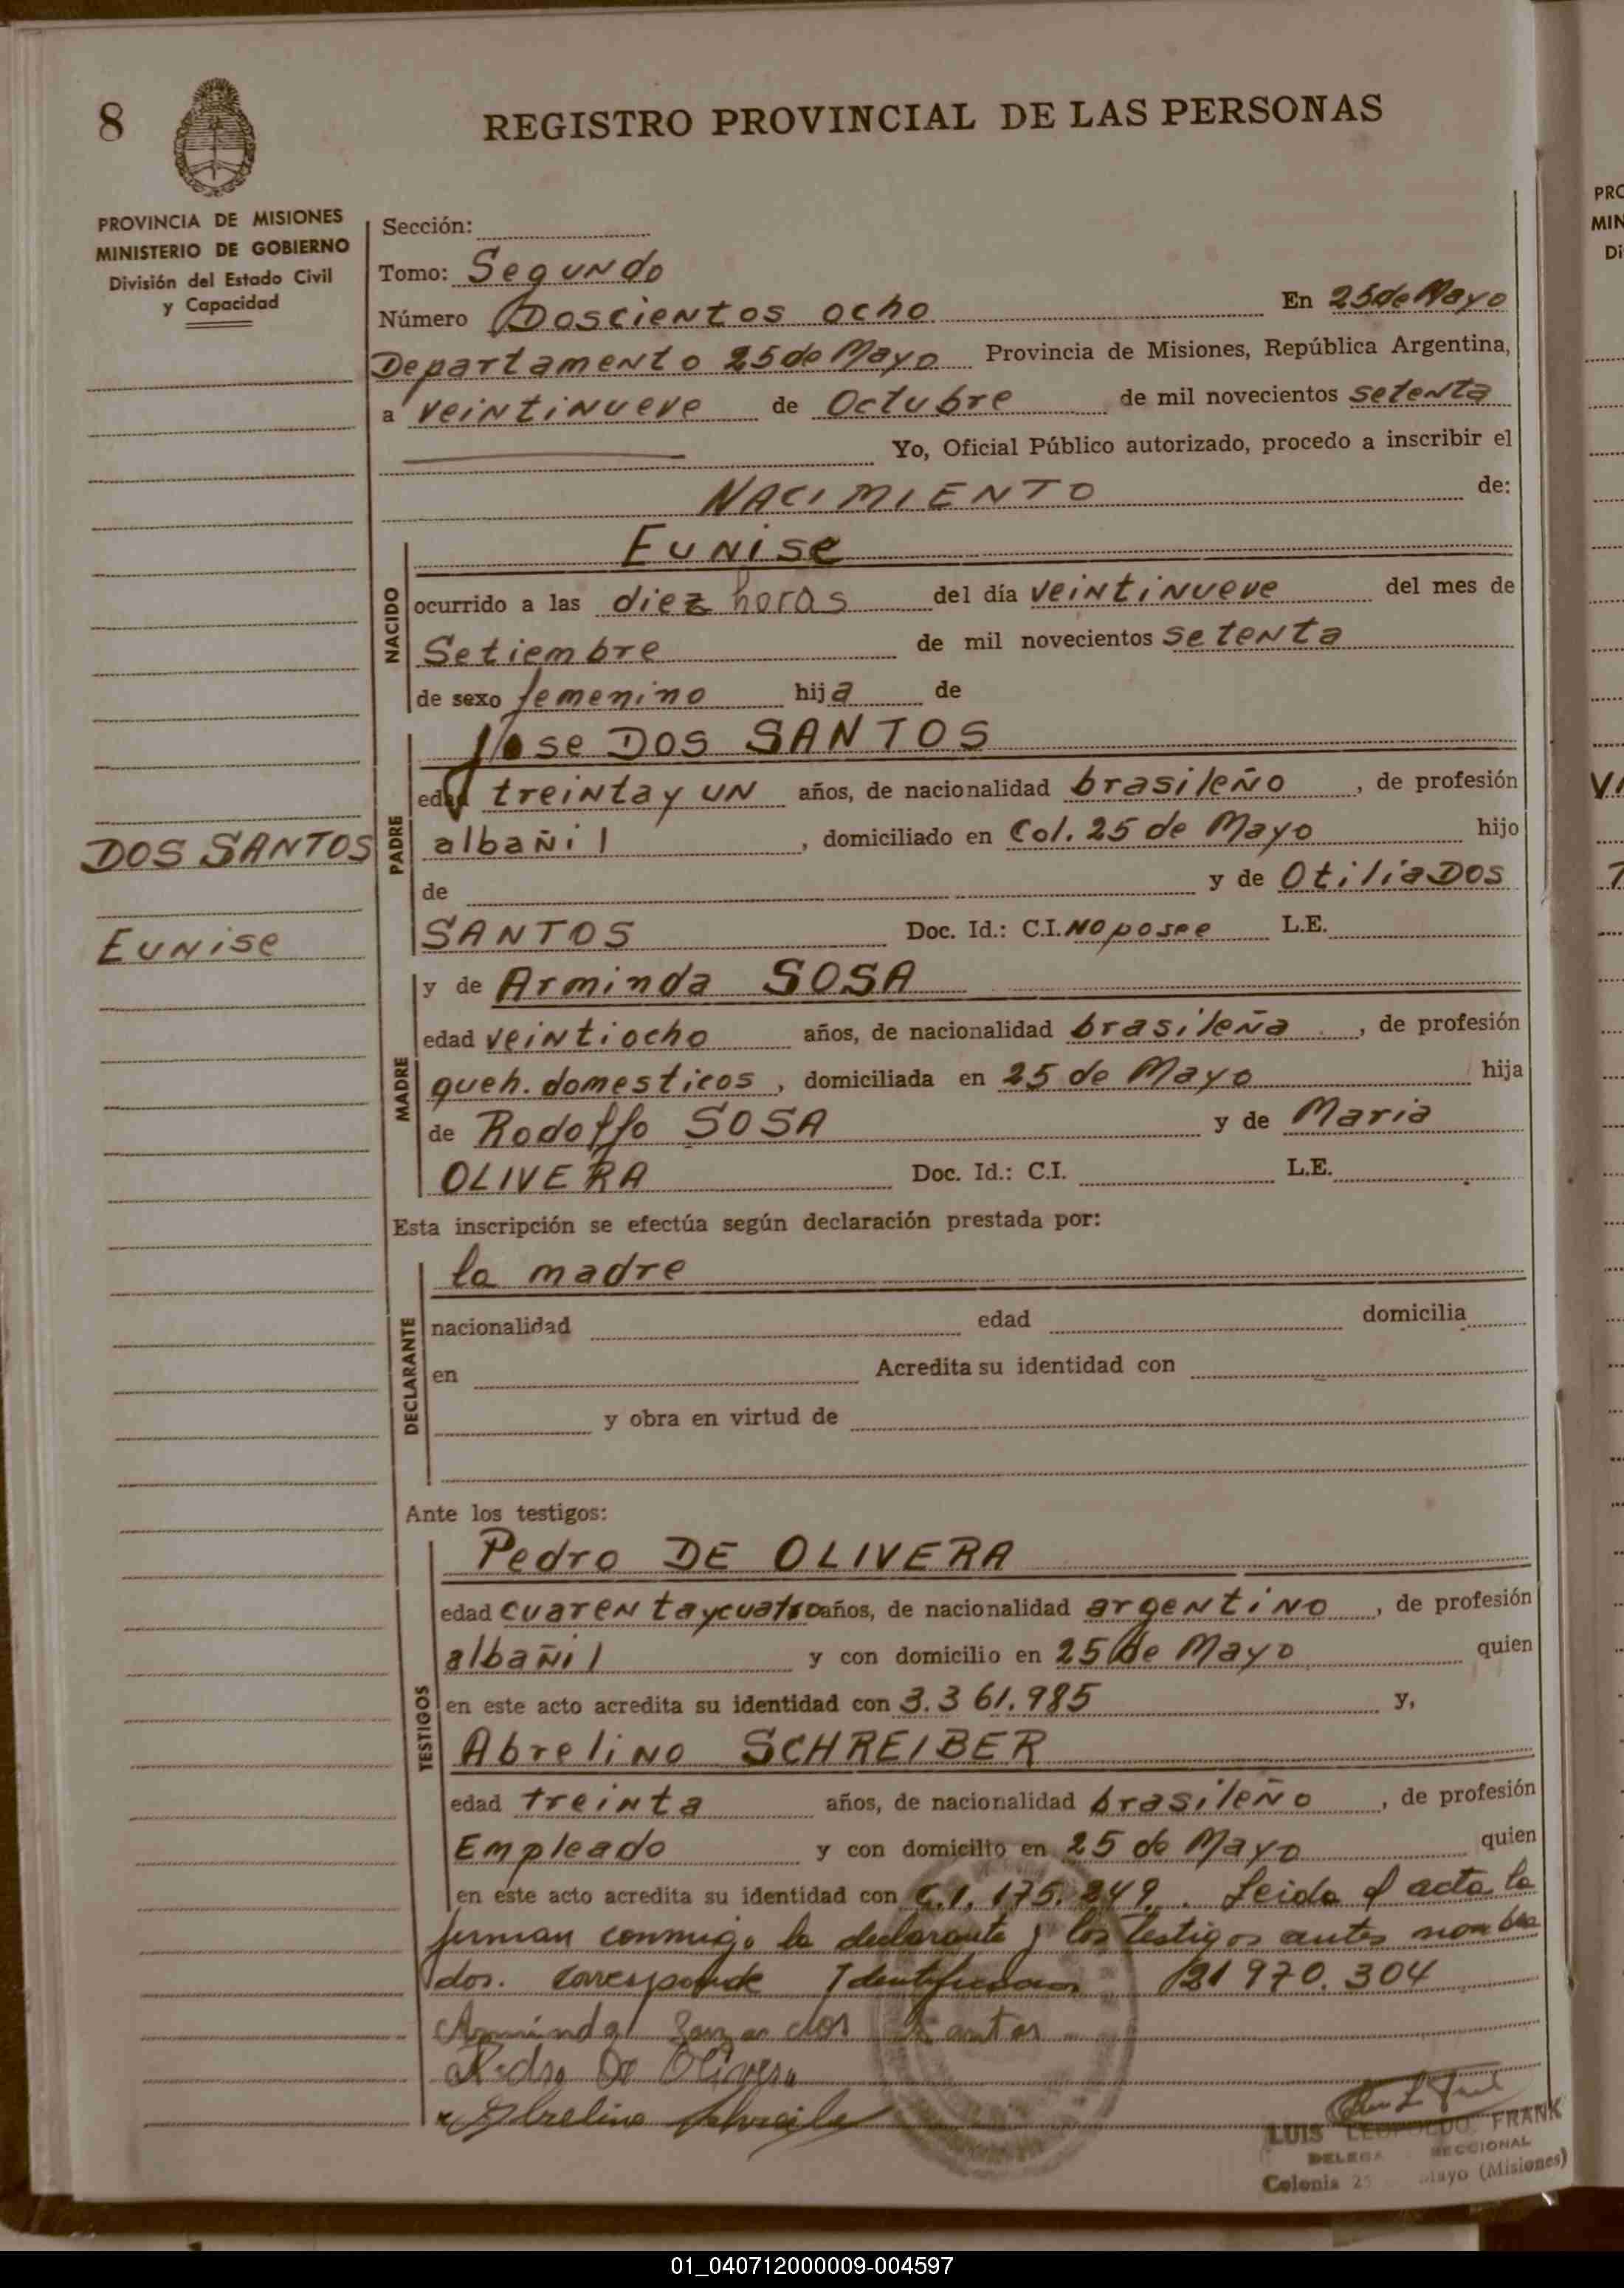 8
REGISTRO PROVINCIAL DE LAS PERSONAS
PROVINCIA DE MISIONES
MINISTERIO DE GOBIERNO
División del Estado Civil
y Capacidad
Sección:
Tomo: Segundo
Número Doscientos ocho En 25 de Mayo
Departamento 25 de Mayo Provincia de Misiones, República Argentina,
a veintinueve de Octubre de mil novecientos setenta
Yo, Oficial Público autorizado, procedo a inscribir el
NACIMIENTO de:
NACIDO
Eunise
ocurrido a las diez horas del día veintinueve del mes de
Setiembre de mil novecientos setenta
de sexo femenino hija de
PADRE
Jose DOS SANTOS
edad treinta y un años, de nacionalidad brasileño, de profesión
albañil, domiciliado en Col. 25 de Mayo hijo
de y de Otilia DOS
SANTOS Doc. Id.: C.I. No posee L.E.
DOS SANTOS
Eunise
MADRE
y de Arminda SOSA
edad veintiocho años, de nacionalidad brasileña, de profesión
queh. domesticos, domiciliada en 25 de Mayo hija
de Rodolfo SOSA y de Maria
OLIVERA Doc. Id.: C.I. L.E.
Esta inscripción se efectúa según declaración prestada por:
DECLARANTE
la madre
nacionalidad edad domicilia
en Acredita su identidad con
y obra en virtud de
Ante los testigos:
TESTIGOS
Pedro DE OLIVERA
edad cuarenta y cuatro años, de nacionalidad argentino, de profesión
albañil y con domicilio en 25 de Mayo quien
en este acto acredita su identidad con 3.361.985 y,
Abrelino SCHREIBER
edad treinta años, de nacionalidad brasileño, de profesión
Empleado y con domicilio en 25 de Mayo quien
en este acto acredita su identidad con C.I. 175.249. Leida el acta la
firman conmigo la declarante y los testigos antes nombra
dos. Corresponde Identificacion 21 970.304
Arminda dos Santos
Pedro De Olivera
Abrelino
LUIS LEOPOLDO FRANK
SECCIONAL
Colonia 25 Mayo (Misiones)
PRO
MIN
Di
01_040712000009-004597